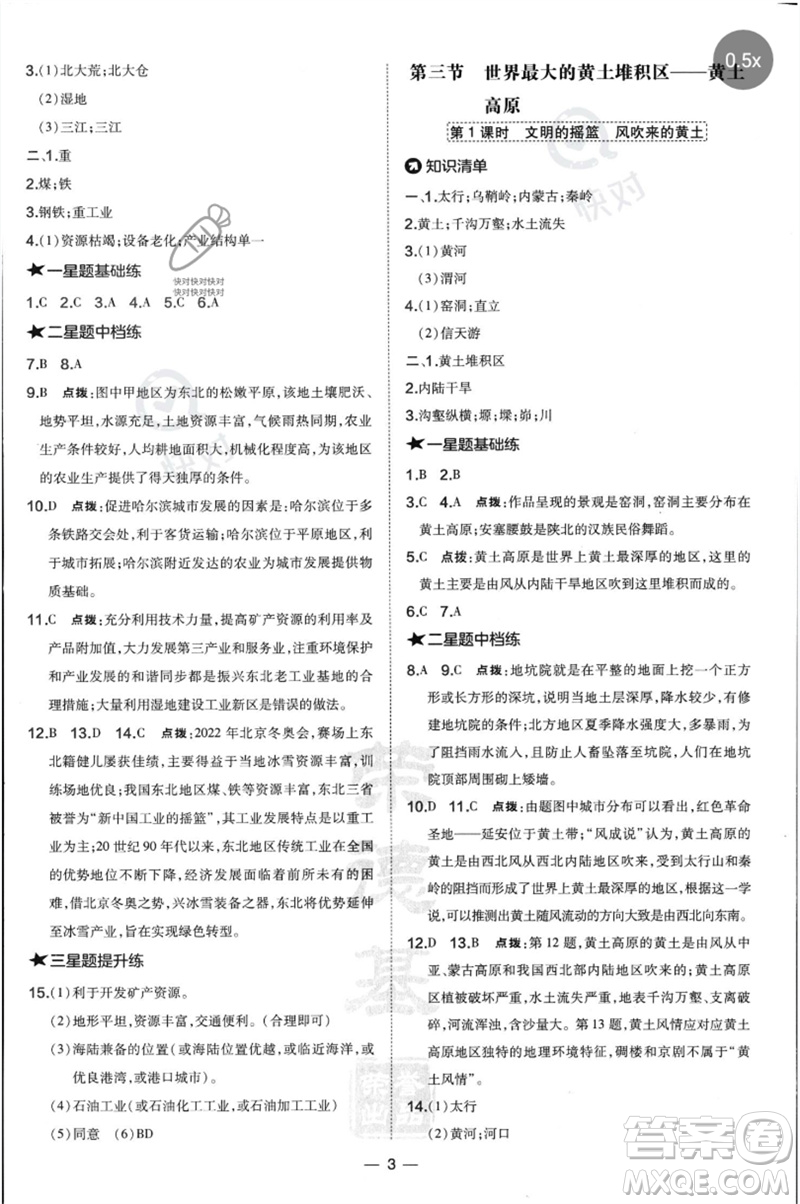 3.(1)北大荒;北大仓
(2)湿地
(3)三江;三江
二、1.重
2.煤;铁
3.钢铁;重工业
4.(1)资源枯竭;设备老化;产业结构单一
快对快对快对
快对快对快对
★一星题基础练
1.C 2.C 3.A 4.A 5.C 6.A
★二星题中档练
7.B 8.A
9.B 点拨:图中甲地区为东北的松嫩平原,该地土壤肥沃、
地势平坦,水源充足,土地资源丰富,气候雨热同期,农业
生产条件较好,人均耕地面积大,机械化程度高,为该地区
的农业生产提供了得天独厚的条件。
10.D 点拨:促进哈尔滨城市发展的因素是:哈尔滨位于多
条铁路交会处,利于客货运输;哈尔滨位于平原地区,利于
城市拓展;哈尔滨附近发达的农业为城市发展提供了物
质基础。
11.C 点拨:充分利用技术力量,提高矿产资源的利用率及
产品附加值,大力发展第三产业和服务业,注重环境保护
和产业与环境的和谐同步,是振兴东北老工业基地的合
理措施;大量利用湿地建设工业新区是错误的做法。
12.B 13.D 14.C 点拨:2022年北京冬奥会,赛场上东
北籍健儿屡获佳绩,主要得益于当地冰雪资源丰富,训
练场地优良;我国东北地区煤、铁等资源丰富,东北三省
被誉为“新中国工业的摇篮”,其工业结构特点是以重工
业为主;20世纪90年代以来,东北地区传统工业在全国
的优势逐渐减弱,借北京冬奥之机,兴冰雪之业,东北打
造冰雪全产业链,兴建冰雪装备制造之器,东北老工业
至冰雪产业,应实现绿色转型。
★三星题提升练
15.(1)利于开发矿产资源。
(2)地形平坦,资源丰富,交通便利。(合理即可)
(3)海陆兼备的位置(或海陆位置优越,或沿海,或
优良港湾,或港口城市)。
(4)石油工业(或石油化工工业,或石油加工工业)
(5)同意 (6)BD
第三节 世界最大的黄土堆积区——黄土
高原
0.5x
第1课时 文明的摇篮 风吹来的黄土
知识清单
一、1.太行;乌鞘岭;内蒙古;秦岭
2.黄土;千沟万壑;水土流失
3.(1)黄河
(3)渭河
4.(1)窑洞;直立
(2)信天游
二、1.黄土堆积区
2.内陆干旱
3.沟壑纵横;塬;墚;峁;川
★一星题基础练
1.B 2.B
3.C 4.A 点拨:作品呈现的景观是窑洞,窑洞主要分布在
黄土高原;安塞腰鼓是陕北的汉族民俗舞蹈。
5.C 点拨:黄土高原是世界上黄土最深厚的地区,这里的
黄土主要是由风从内陆干旱地区吹到这里堆积而成的。
6.C 7.A
★二星题中档练
8.A 9.C 点拨:地坑院就是在平整的地面上挖一个正方
形或长方形的深坑,说明当地土层深厚,降水较少,具有
修建地坑院的条件;北方地区夏季降水强度大,多暴雨,为
了阻挡雨水流入、防止人畜坠落至坑院,人们在地坑院
院顶部周围砌上矮墙。
10.D 11.C 点拨:由题图中城市分布可以看出,红色革命
圣地——延安位于黄土带;“风成说”认为,黄土高原的
黄土来自西北方的内陆地区,受到东边的太行山和秦
岭的阻挡而沉积下来的。这样,经过漫长的地质时期,因
此,可以推测出黄土随风流动的方向大致为自西北向东南。
12.D 13.B 点拨:第12题,黄土高原的黄土是由风从中
亚、蒙古高原等地吹来的,黄土高原水土流失严重,自然植
被破坏严重,河流浑浊,含沙量大。第13题,黄土风情应对应黄土
高原地区独特的地理环境特征,碉楼和京剧不属于“黄
土风情”。
14.(1)太行
(2)黄河;河口
荣德基
荣誉出品
快对
答案圈
MXQE.COM
3